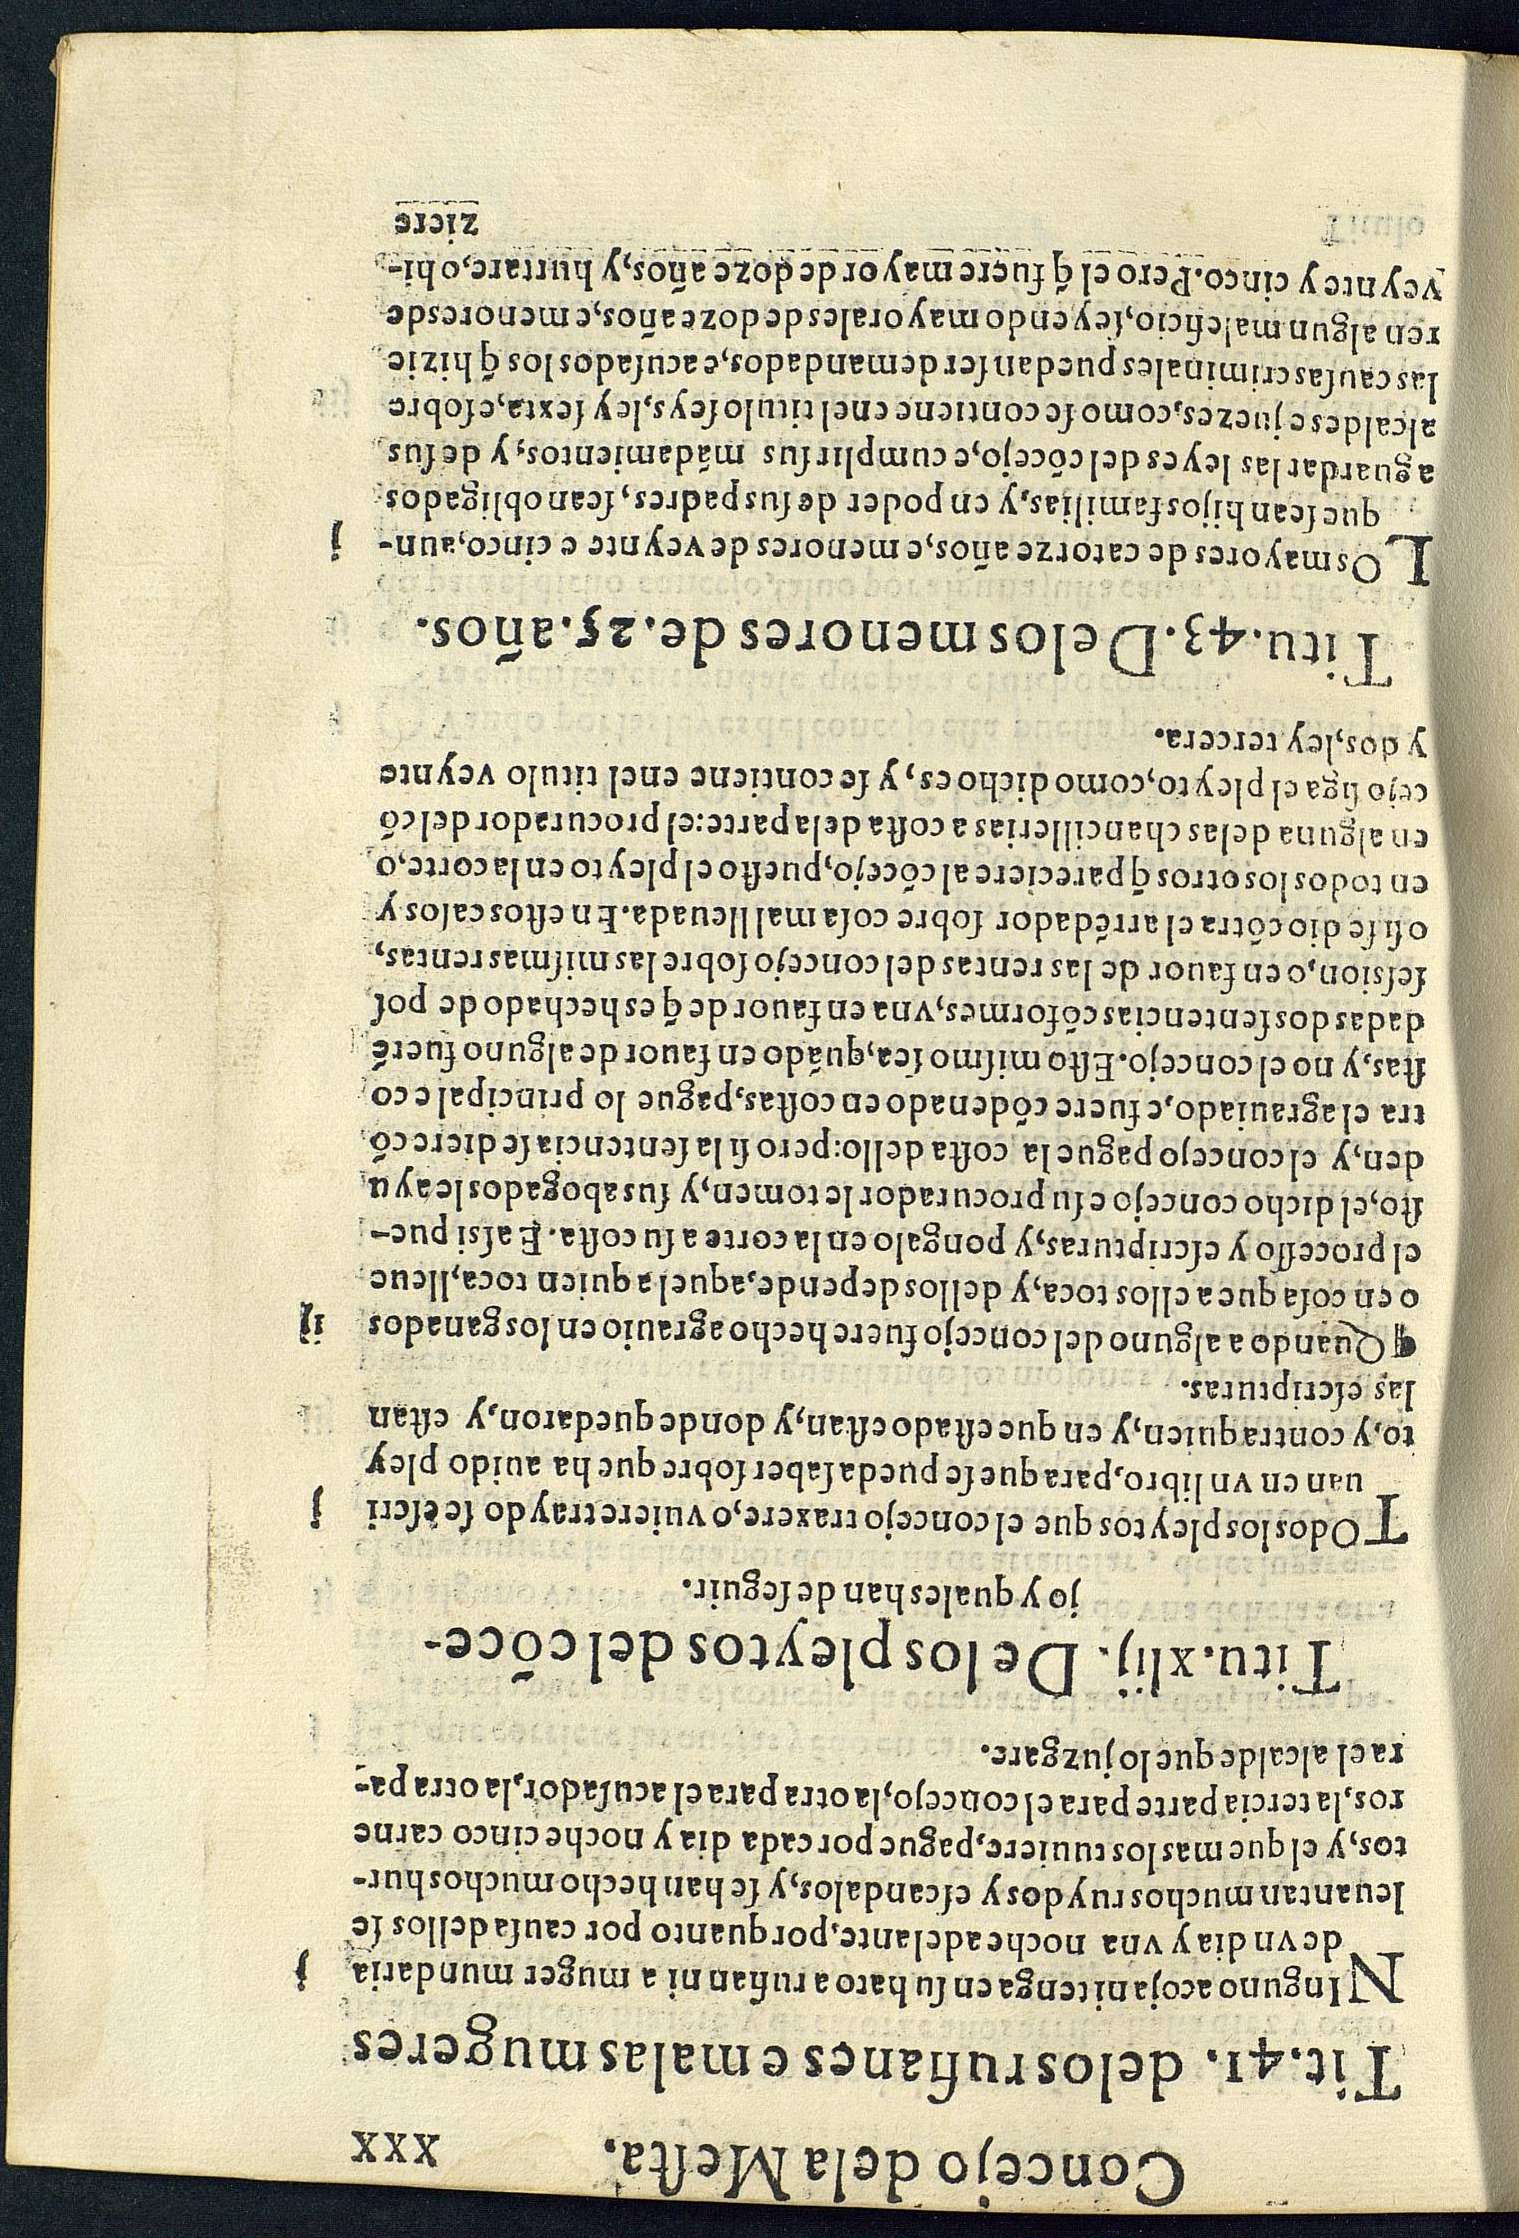 Concejo dela Meſta. XXX
Tit.41. delos rufianes e malas mugeres
NInguno acoja ni tenga en ſu hato a rufian ni a muger mundaria j
de vn dia y vna noche adelante, por quanto por cauſa dellos ſe
leuantan muchos ruydos y eſcandalos, y ſe han hecho muchos hur-
tos, y el que mas los tuuiere, pague por cada dia y noche cinco carne
ros, la tercia parte para el concejo, la otra para el acuſador, la otra pa-
ra el alcalde que lo juzgare.
Titu.xlij. De los pleytos del cōce-
jo y quales han de ſeguir.
TOdos los pleytos que el concejo traxere, o vuiere traydo ſe eſcri j
uan en vn libro, para que ſe pueda ſaber ſobre que ha auido pley
to, y contra quien, y en que eſtado eſtan, y donde quedaron, y eſtan
las eſcripturas.
¶ Quando a alguno del concejo fuere hecho agrauio en los ganados ij
o en coſa que a ellos toca, y dellos depende, aquel a quien toca, lleue
el proceſſo y eſcripturas, y pongalo en la corte a ſu coſta. E aſsi pue-
ſto, el dicho concejo e ſu procurador le tomen, y ſus abogados le ayu
den, y el concejo pague la coſta dello: pero ſi la ſentencia ſe diere cō
tra el agrauiado, e fuere cōdenado en coſtas, pague lo principal e co
ſtas, y no el concejo. Eſto miſmo ſea, quādo en fauor de alguno fuerē
dadas dos ſentencias cōformes, vna en fauor de q̄ es hechado de poſ
ſeſsion, o en fauor de las rentas del concejo ſobre las miſmas rentas,
o ſi ſe dio cōtra el arrēdador ſobre coſa mal lleuada. En eſtos caſos y
en todos los otros q̄ pareciere al cōcejo, pueſto el pleyto en la corte, o
en alguna delas chancillerias a coſta dela parte: el procurador del cō
cejo ſiga el pleyto, como dicho es, y ſe contiene enel titulo veynte
y dos, ley tercera.
Titu.43. Delos menores de.25.años.
LOs mayores de catorze años, e menores de veynte e cinco, aun- j
que ſean hijos familias, y en poder de ſus padres, ſean obligados
a guardar las leyes del cōcejo, e cumplir ſus mādamientos, y de ſus
alcaldes e juezes, como ſe contiene enel titulo ſeys, ley ſexta, e ſobre
las cauſas criminales puedan ſer demandados, e acuſados los q̄ hizie
ren algun maleficio, ſeyendo mayorales de doze años, e menores de
veynte y cinco. Pero el q̄ fuere mayor de doze años, y hurtare, o hi-
ziere